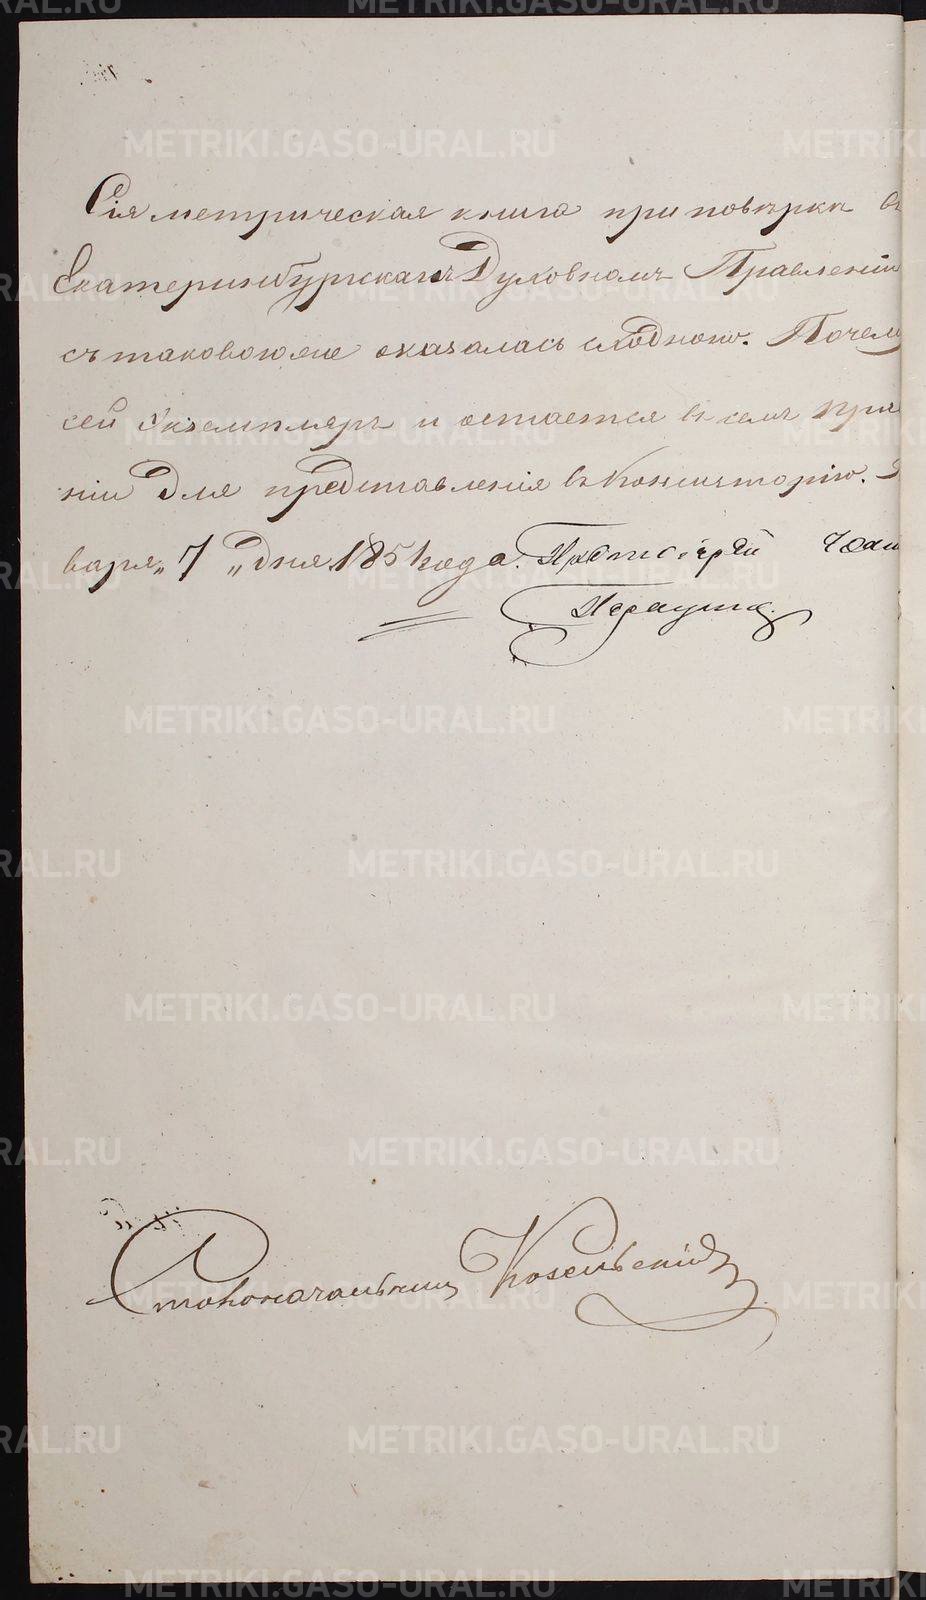 Сія метрическая книга при повѣркѣ въ
Екатеринбургскомъ Духовномъ Правленіи
съ таковоюже оказалась сходною. Почему
сей экземпляръ и остается въ семъ Прав
ніи для представленія въ Консисторію.
варя „7„ дня 1851 года. Протоіерей Іоан
Столоначальникъ Козельскій
METRIKI.GASO-URAL.RU